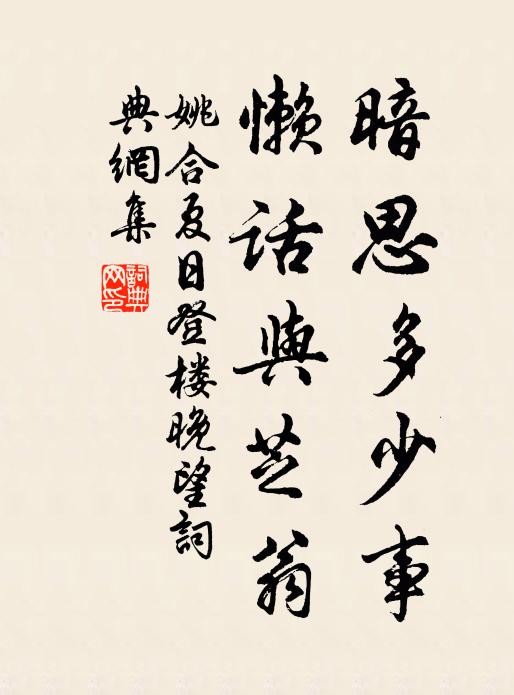 暗思多少事
懶話與芝翁
姚合夏日登楼晚望詞
典網集
詞典网印